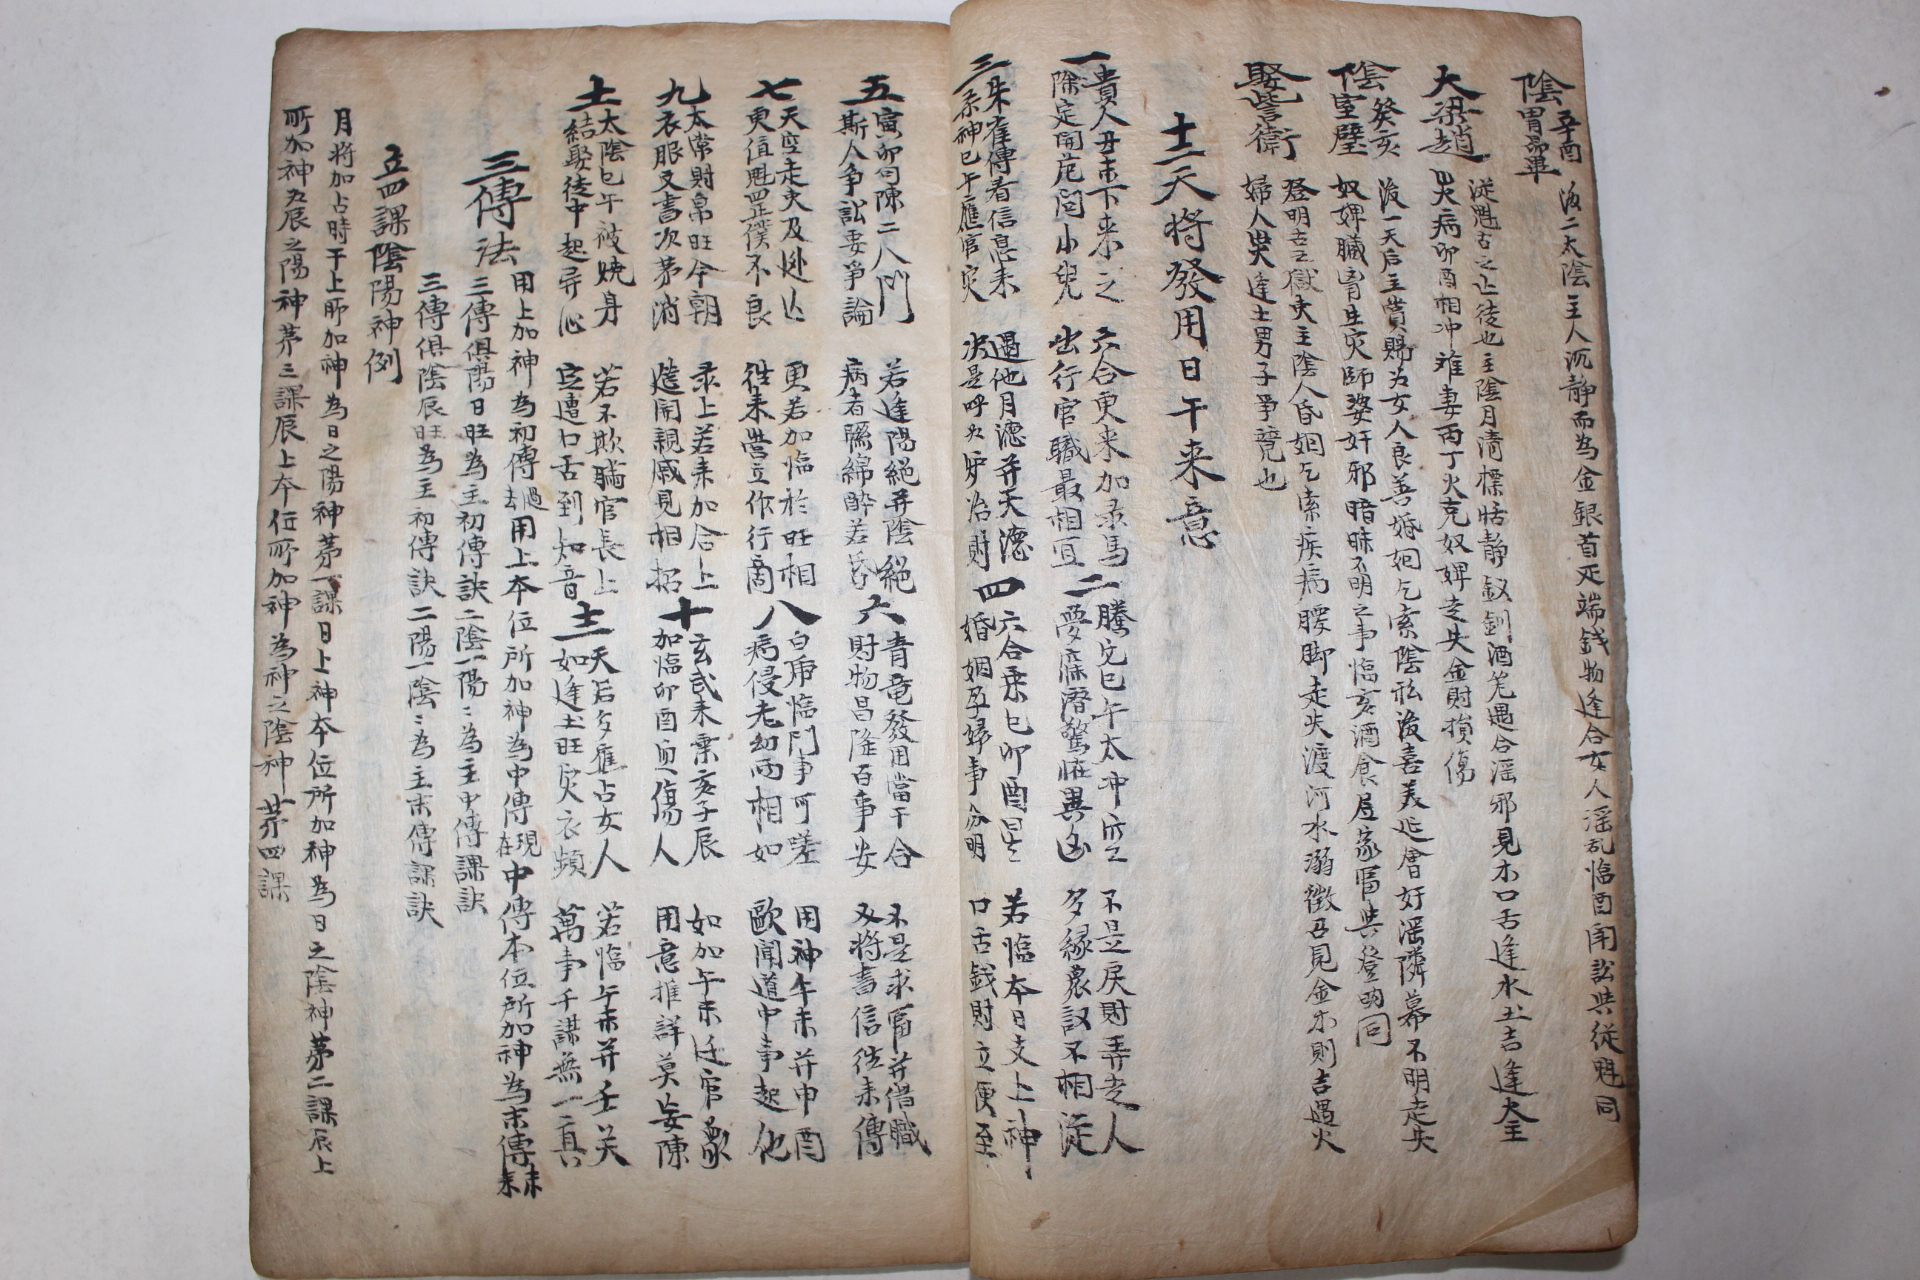 陰 辛酉 胃昴畢 後二太陰主人沉静而為金銀首疋端錢物逢合女人淫乱臨酉開訟與從魁同
大梁趙 從魁古之亡徒也主陰月清標恬静釵釧酒 遇合淫邪見木口舌逢水土吉逢火主
哭病卯酉相冲难妻丙丁火克奴婢走失金財損傷
陰 癸亥 室壁 後一天后主賞賜为女人良善婚姻乞索陰私後喜美 會好淫隣幕不明走失
奴婢臟 生灾師婆奸邪暗昧不明之事臨亥酒食 家富與登明同
娶訾衛 登明古之獄吏主陰人昏姻乞索疾病腰脚走失渡河水溺徵召見金木則吉遇火
婦人哭逢土男子爭競也
十二天將發用日干来意
一 貴人丑未下来之 六合更来加彔馬 二 騰它巳午太冲空 不是戾財弄走人
除定開 問小兒 出行官職最相宜 夢寐潛驚恠異凶 多緣農 不相從
三 朱雀傳看信息来 遇他月德并天德 四 六合乘巳卯酉星 若臨本日支上神
系神巳午應官灾 决是呼为炉治財 婚姻孕婦事分明 口舌錢財立便至
五 寅卯勾陳二八門 若逢陽絕并陰絕 六 青竜發用當干合 不是求富并借職
斯人争訟要爭論 病者縣綿醉若昏 財物昌隆百事安 又將書信徃来傳
七 天空走失及 更若加臨於旺相 八 白虎臨門事可嗟 用神午未并申酉
更值魁罡僕不良 徃来營立作行商 病侵老幼两相如 歐聞道中事起他
九 太常財帛旺今朝 彔上若来加合上 十 玄武来乘亥子辰 如加午未迁官象
衣服文書次苐消 筵開親戚見相招 加臨卯酉血傷人 用意推詳莫妄陳
十一 太陰巳午被燒身 若不欺瞞官長上 十二 天后多應占女人 若臨午未并壬癸
結娶徒中起异心 定遭口舌到知音 如逢土旺灾衣頻 萬事千謀無一真
三傳法 用上加神為初傳過去用上夲位所加神為中傳現在中傳本位所加神為末傳未来
三傳俱陽日旺為主初傳訣二陰一陽ミ為主中傳課訣
三傳俱陰辰旺為主初傳訣二陽一陰ミ為主末傳課訣
立四課陰陽神例
月將加占時干上所加神為日之陽神苐一課日上神夲位所加神為日之陰神苐二課辰上
所加神为辰之陽神苐三課辰上夲位所加神為神之陰神苐四課